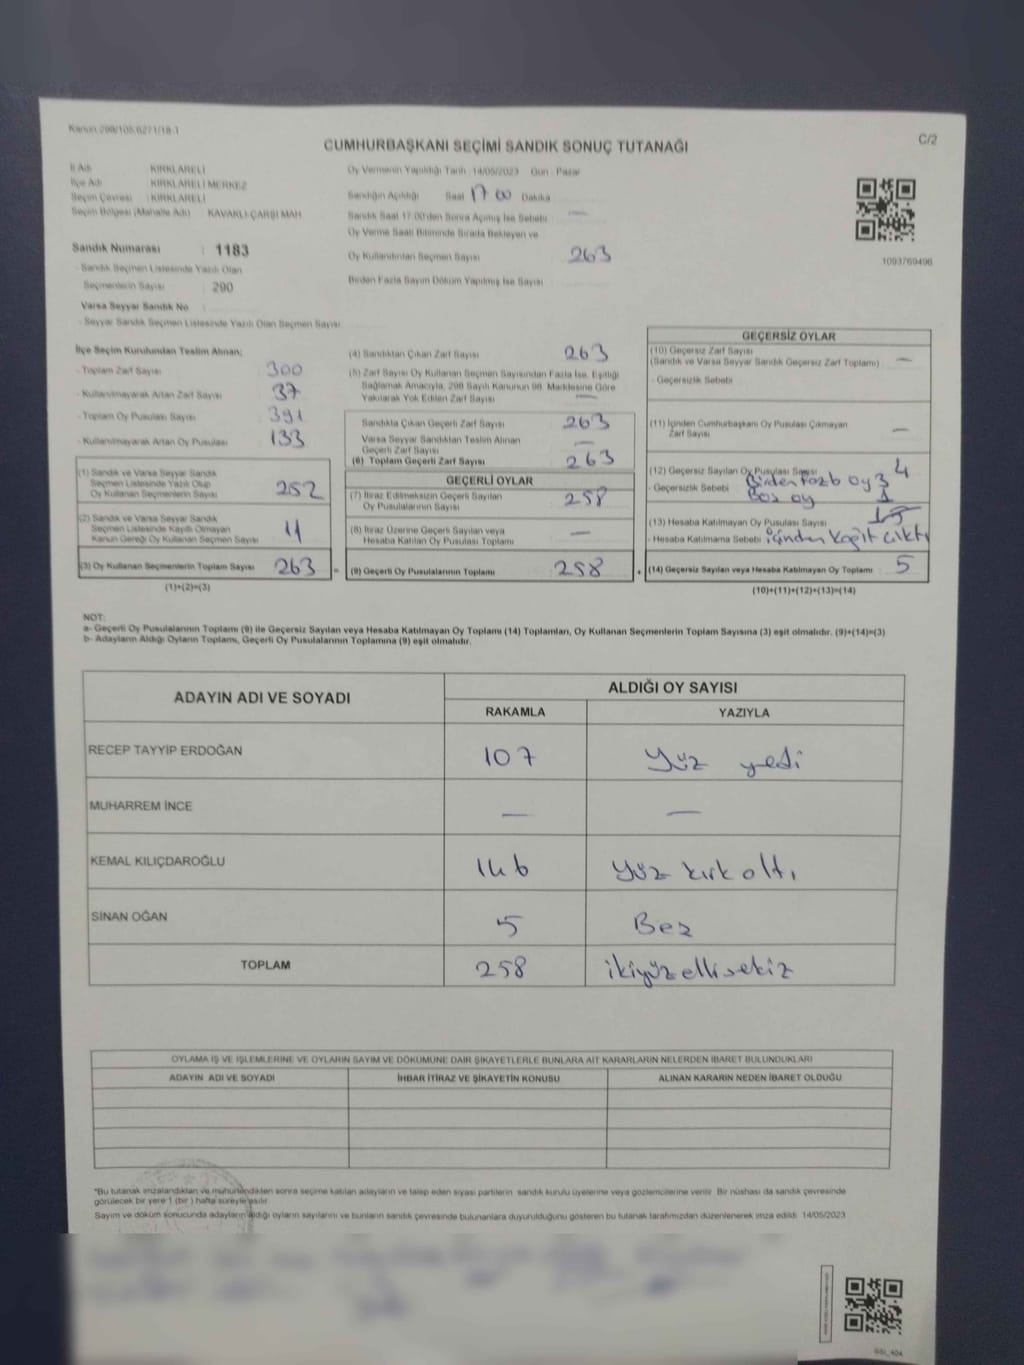 Kanun:298/105,6271/18-1
C/2
CUMHURBAŞKANI SEÇİMİ SANDIK SONUÇ TUTANAĞI
İl Adı : KIRKLARELİ
İlçe Adı : KIRKLARELİ MERKEZ
Seçim Çevresi : KIRKLARELİ
Seçim Bölgesi (Mahalle Adı) : KAVAKLI-ÇARŞI MAH
Sandık Numarası : 1183
- Sandık Seçmen Listesinde Yazılı Olan
Seçmenlerin Sayısı : 290
Varsa Seyyar Sandık No :
- Seyyar Sandık Seçmen Listesinde Yazılı Olan Seçmen Sayısı
Oy Vermenin Yapıldığı Tarih : 14/05/2023 Gün : Pazar
Sandığın Açıldığı Saat 17 00 Dakika
Sandık Saat 17.00'den Sonra Açılmış İse Sebebi : —
Oy Verme Saati Bitiminde Sırada Bekleyen ve
Oy Kullandırılan Seçmen Sayısı 263
Birden Fazla Sayım Döküm Yapılmış İse Sayısı
1093769496
İlçe Seçim Kurulundan Teslim Alınan;
- Toplam Zarf Sayısı : 300
- Kullanılmayarak Artan Zarf Sayısı : 37
- Toplam Oy Pusulası Sayısı : 391
- Kullanılmayarak Artan Oy Pusulası : 133
(1) Sandık ve Varsa Seyyar Sandık
Seçmen Listesinde Yazılı Olup
Oy Kullanan Seçmenlerin Sayısı : 252
(2) Sandık ve Varsa Seyyar Sandık
Seçmen Listesinde Kayıtlı Olmayan
Kanun Gereği Oy Kullanan Seçmen Sayısı : 11
(3) Oy Kullanan Seçmenlerin Toplam Sayısı : 263
(1)+(2)=(3)
(4) Sandıktan Çıkan Zarf Sayısı : 263
(5) Zarf Sayısı Oy Kullanan Seçmen Sayısından Fazla İse, Eşitliği
Sağlamak Amacıyla, 298 Sayılı Kanunun 98. Maddesine Göre
Yakılarak Yok Edilen Zarf Sayısı : —
Sandıkta Çıkan Geçerli Zarf Sayısı : 263
Varsa Seyyar Sandıktan Teslim Alınan
Geçerli Zarf Sayısı : —
(6) Toplam Geçerli Zarf Sayısı : 263
GEÇERLİ OYLAR
(7) İtiraz Edilmeksizin Geçerli Sayılan
Oy Pusulalarının Sayısı : 258
(8) İtiraz Üzerine Geçerli Sayılan veya
Hesaba Katılan Oy Pusulası Toplamı : —
(9) Geçerli Oy Pusulalarının Toplamı : 258
GEÇERSİZ OYLAR
(10) Geçersiz Zarf Sayısı
(Sandık ve Varsa Seyyar Sandık Geçersiz Zarf Toplamı) : —
- Geçersizlik Sebebi
(11) İçinden Cumhurbaşkanı Oy Pusulası Çıkmayan
Zarf Sayısı : —
(12) Geçersiz Sayılan Oy Pusulası Sayısı 4
- Geçersizlik Sebebi : Birden Fazla oy 3
Boş oy 1
(13) Hesaba Katılmayan Oy Pusulası Sayısı
- Hesaba Katılmama Sebebi : içinden kağıt çıktı
(14) Geçersiz Sayılan veya Hesaba Katılmayan Oy Toplamı : 5
(10)+(11)+(12)+(13)=(14)
NOT:
a- Geçerli Oy Pusulalarının Toplamı (9) ile Geçersiz Sayılan veya Hesaba Katılmayan Oy Toplamı (14) Toplamları, Oy Kullanan Seçmenlerin Toplam Sayısına (3) eşit olmalıdır. (9)+(14)=(3)
b- Adayların Aldığı Oyların Toplamı, Geçerli Oy Pusulalarının Toplamına (9) eşit olmalıdır.
ADAYIN ADI VE SOYADI ALDIĞI OY SAYISI
RAKAMLA YAZIYLA
RECEP TAYYİP ERDOĞAN 107 Yüz yedi
MUHARREM İNCE — —
KEMAL KILIÇDAROĞLU 146 Yüz kırk altı
SİNAN OĞAN 5 Beş
TOPLAM 258 ikiyüzellisekiz
OYLAMA İŞ VE İŞLEMLERİNE VE OYLARIN SAYIM VE DÖKÜMÜNE DAİR ŞİKAYETLERLE BUNLARA AİT KARARLARIN NELERDEN İBARET BULUNDUKLARI
ADAYIN ADI VE SOYADI İHBAR İTİRAZ VE ŞİKAYETİN KONUSU ALINAN KARARIN NEDEN İBARET OLDUĞU
"Bu tutanak imzalandıktan ve mühürlendikten sonra seçime katılan adayların ve talep eden siyasi partilerin sandık kurulu üyelerine veya gözlemcilerine verilir. Bir nüshası da sandık çevresinde
görülecek bir yere 1 (bir) hafta süreyle asılır.
Sayım ve döküm sonucunda adayların aldığı oyların sayılarını ve bunların sandık çevresinde bulunanlara duyurulduğunu gösteren bu tutanak tarafımızdan düzenlenerek imza edildi. 14/05/2023